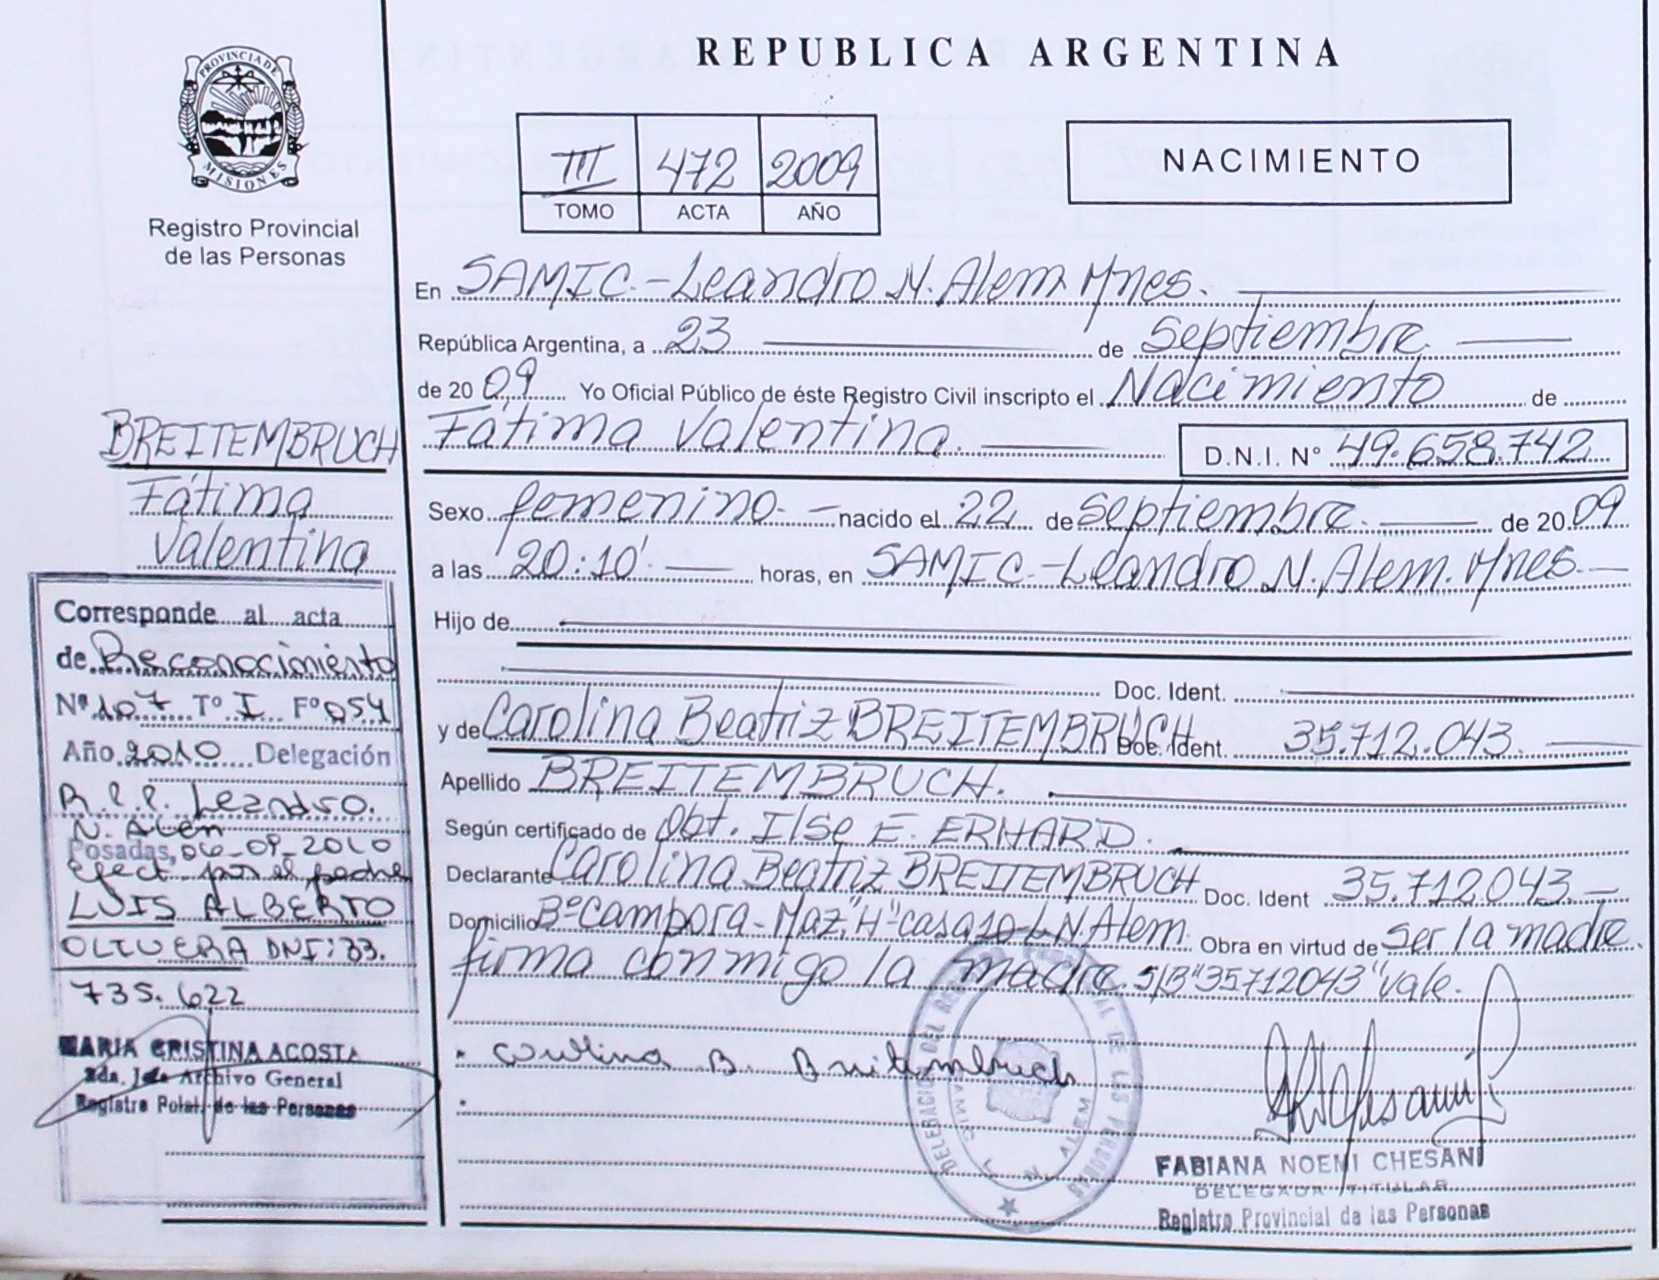 REPUBLICA ARGENTINA
PROVINCIA DE
MISIONES
Registro Provincial
de las Personas
III 472 2009
TOMO ACTA AÑO
NACIMIENTO
En SAMIC.-Leandro N. Alem. Mnes.
República Argentina, a 23 de septiembre.
de 2009. Yo Oficial Público de éste Registro Civil inscripto el Nacimiento de
Fátima Valentina.
D.N.I. N° 49.658.742
Sexo femenino.- nacido el 22 de septiembre. de 2009
a las 20:10' horas, en SAMIC.-Leandro N. Alem. Mnes.
Hijo de
Doc. Ident.
y de Carolina Beatriz BREITEMBRUCH Doc. Ident. 35.712.043.
Apellido BREITEMBRUCH.
Según certificado de Obt. Ilse E. ERHARD.
Declarante Carolina Beatriz BREITEMBRUCH Doc. Ident 35.712.043.-
Domicilio B° Campora-Maz."H" casa 10-L.N.Alem. Obra en virtud de ser la madre.
firma conmigo la madre. S/B"35712043" vale.
Carolina B. Breitembruch
DELEGACIÓN DEL REGISTRO PROVINCIAL DE LAS PERSONAS
L. N. ALEM
FABIANA NOEMI CHESANI
DELEGADA TITULAR
Registro Provincial de las Personas
BREITEMBRUCH
Fátima
Valentina
Corresponde al acta
de Reconocimiento
Nº 107 Tº I Fº 054
Año 2010 Delegación
R.P.P. Leandro.
N. Alen
Posadas, 06-09-2010
Efect. por el padre
LUIS ALBERTO
OLIVERA DNI: 33.
735.622
MARIA CRISTINA ACOSTA
2da. Jefa Archivo General
Registro Pcial. de las Personas